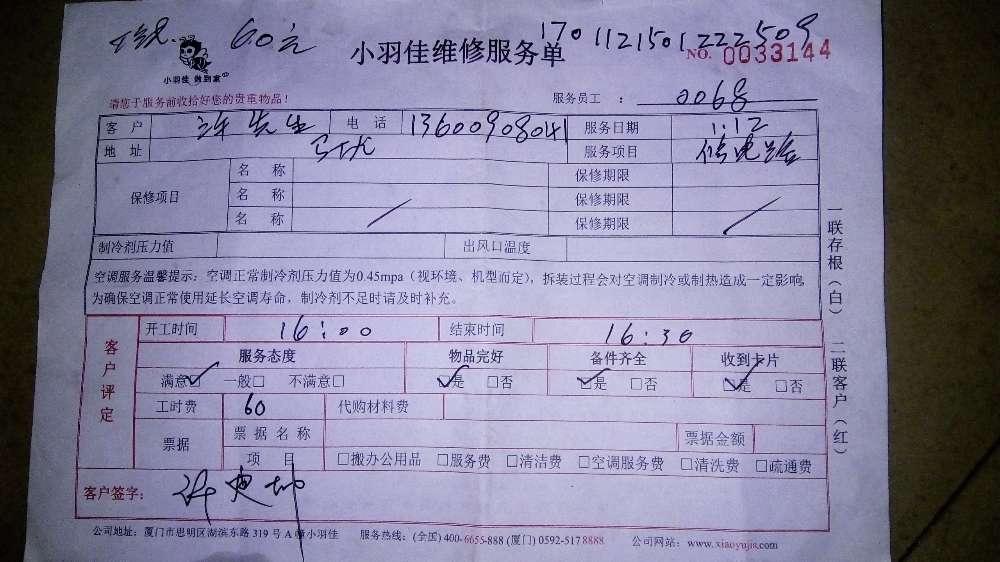 60元 1701121501222509
小羽佳维修服务单 NO. 0033144
小羽佳 做到家
请您于服务前收拾好您的贵重物品！ 服务员工 ： 0068
客户 许先生 电话 13600908041 服务日期 1.12
地址 服务项目 修电路
保修项目 名称 保修期限
名称 保修期限
名称 保修期限
制冷剂压力值 出风口温度
空调服务温馨提示：空调正常制冷剂压力值为0.45mpa（视环境、机型而定），拆装过程会对空调制冷或制热造成一定影响，
为确保空调正常使用延长空调寿命，制冷剂不足时请及时补充。
客户评定
开工时间 16:00 结束时间 16:30
服务态度 物品完好 备件齐全 收到卡片
满意☑ 一般□ 不满意□ ☑是 □否 ☑是 □否 ☑是 □否
工时费 60 代购材料费
票据 票据名称 票据金额
项目 □搬办公用品 □服务费 □清洁费 □空调服务费 □清洗费 □疏通费
客户签字：
公司地址：厦门市思明区湖滨东路 319 号 A 幢小羽佳 服务热线：(全国) 400-6655-888 (厦门) 0592-5178888 公司网站：www.xiaoyujia.com
一联存根（白） 二联客户（红）